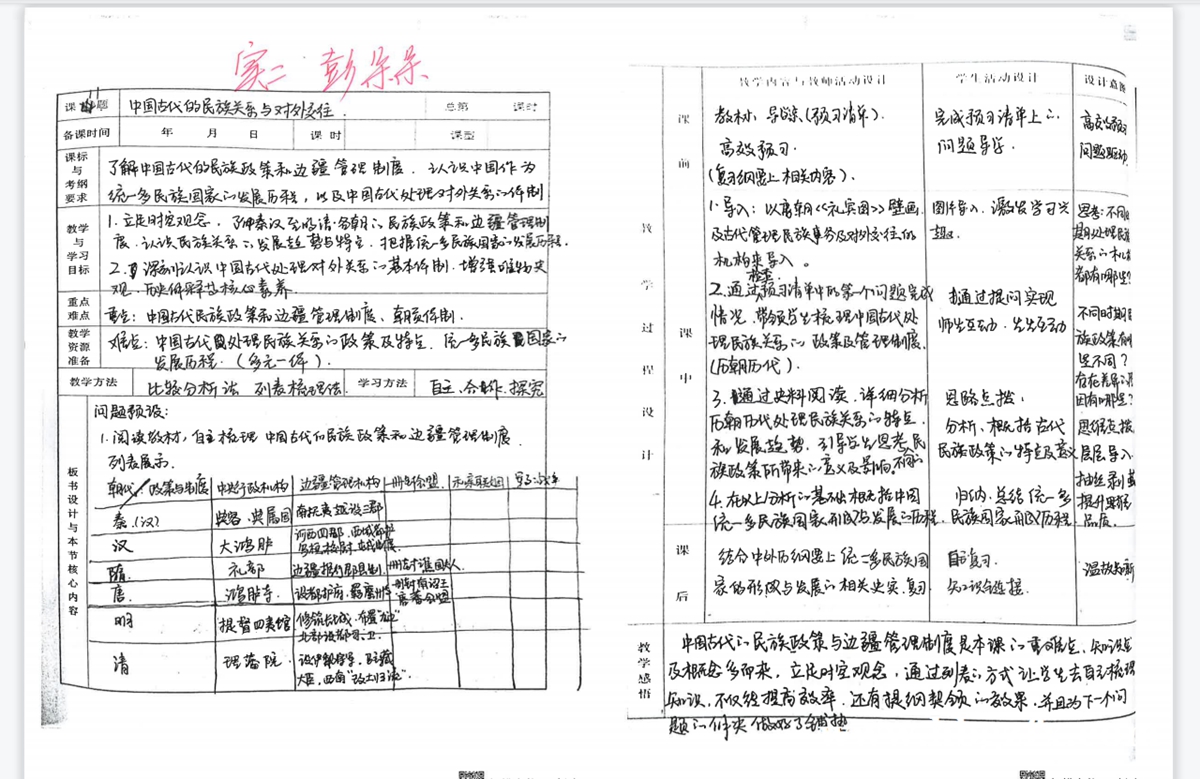 实二 彭朵朵
课题 中国古代的民族关系与对外交往. 总第 课时
备课时间 年 月 日 课时 课型
课标与考纲要求
了解中国古代的民族政策和边疆管理制度. 认识中国作为
统一多民族国家的发展历程, 以及中国古代处理对外关系的体制
教学与学习目标
1. 立足时空观念, 了解秦汉至明清各朝的民族政策和边疆管理制
度. 认识民族关系的发展趋势与特点. 把握统一多民族国家的发展历程.
2. 深刻认识中国古代处理对外关系的基本体制. 增强唯物史
观. 历史解释等核心素养.
重点难点
重点: 中国古代民族政策和边疆管理制度、朝贡体制.
教学资源准备
难点: 中国古代处理民族关系的政策及特点. 统一多民族国家的
发展历程. (多元一体).
教学方法 比较分析法 列表梳理法. 学习方法 自主、合作、探究
板书设计与本节核心内容
问题预设:
1. 阅读教材, 自主梳理 中国古代的民族政策和边疆管理制度.
列表展示.
朝代 政策与制度 中央行政机构 边疆管理机构 册封会盟 和亲联姻
秦.(汉) 典客. 典属国 南越设三郡
汉 大鸿胪 河西四郡. 西域都护
隋. 礼部 边疆推行郡县制.
唐. 鸿胪寺. 设都护府. 羁縻州
明 提督四夷馆 修筑长城,
清 理藩院. 大臣, 西南"改土归流".
教学过程设计
教学内容与教师活动设计 学生活动设计 设计意图
课前
教材、导学案(预习清单). 完成预习清单上的 高效预习
高效预习. 问题导学. 问题驱动.
(复习纲要上相关内容).
课中
1. 导入: 以唐朝《礼宾图》壁画 图片导入. 激发学习兴
及古代管理民族事务及对外交往的 趣.
机构来导入。
思考: 不同时
期处理民族
关系的机构
都有哪些?
2. 通过检查预习清单中的第一个问题完成
情况. 带领学生梳理中国古代处
理民族关系的政策及管理制度.
(历朝历代).
通过提问实现
师生互动. 生生互动
不同时期民
族政策有哪
些不同?
存在差异的原
因有哪些?
3. 通过史料阅读. 详细分析
历朝历代处理民族关系的特点
和发展趋势. 引导学生思考民
族政策所带来的意义及影响.
思路点拨.
分析、概括古代
民族政策的特点及意义
思维点拨
层层导入.
抽丝剥茧
提升思维
品质.
4. 在以上分析的基础概括中国
统一多民族国家形成与发展的历程.
归纳. 总结统一多
民族国家形成历程
课后
结合中外历史纲要上统一多民族国
家的形成与发展的相关史实. 复习
自主复习.
知识链接.
温故知新
教学感悟
中国古代的民族政策与边疆管理制度是本课的重难点. 知识点
及概念多而杂. 立足时空观念, 通过列表的方式让学生去自主梳理
知识, 不仅能提高效率. 还有提纲挈领的效果. 并且为下一个问
题的解决做好了铺垫